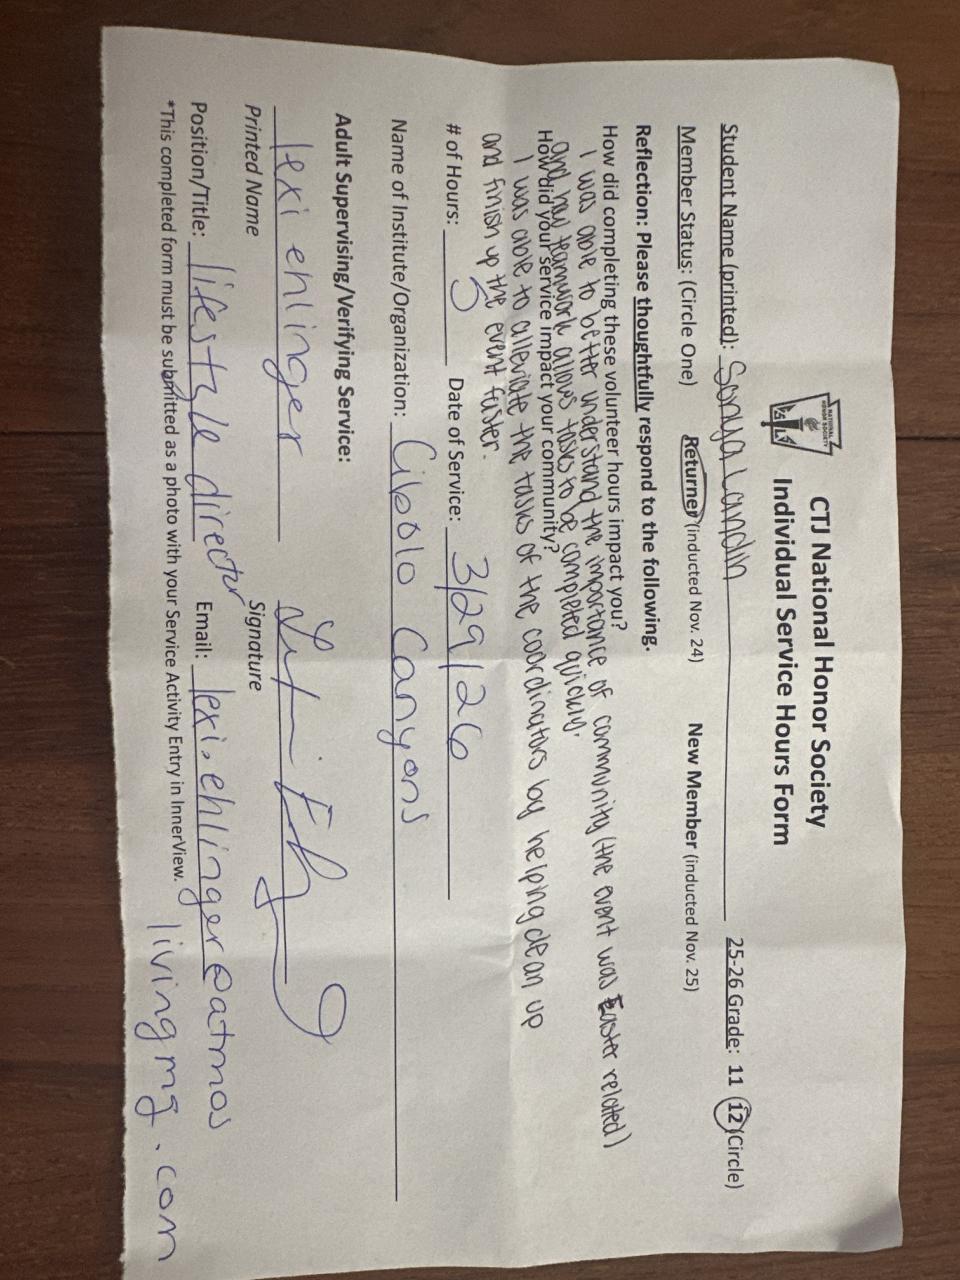 NATIONAL
HONOR SOCIETY
CTJ National Honor Society
Individual Service Hours Form
Student Name (printed): Sonya Landin 25-26 Grade: 11 12 (Circle)
Member Status: (Circle One) Returner (inducted Nov. 24) New Member (inducted Nov. 25)
Reflection: Please thoughtfully respond to the following.
How did completing these volunteer hours impact you?
I was able to better understand the importance of community (the event was Easter related)
and how teamwork allows tasks to be completed quickly.
How did your service impact your community?
I was able to alleviate the tasks of the coordinators by helping clean up
and finish up the event faster.
# of Hours: 5 Date of Service: 3/29/26
Name of Institute/Organization: Cibolo Canyons
Adult Supervising/Verifying Service:
lexi ehlinger
Printed Name Signature
Position/Title: lifestyle director Email: lexi.ehlinger@atmos
livingmg.com
*This completed form must be submitted as a photo with your Service Activity Entry in InnerView.